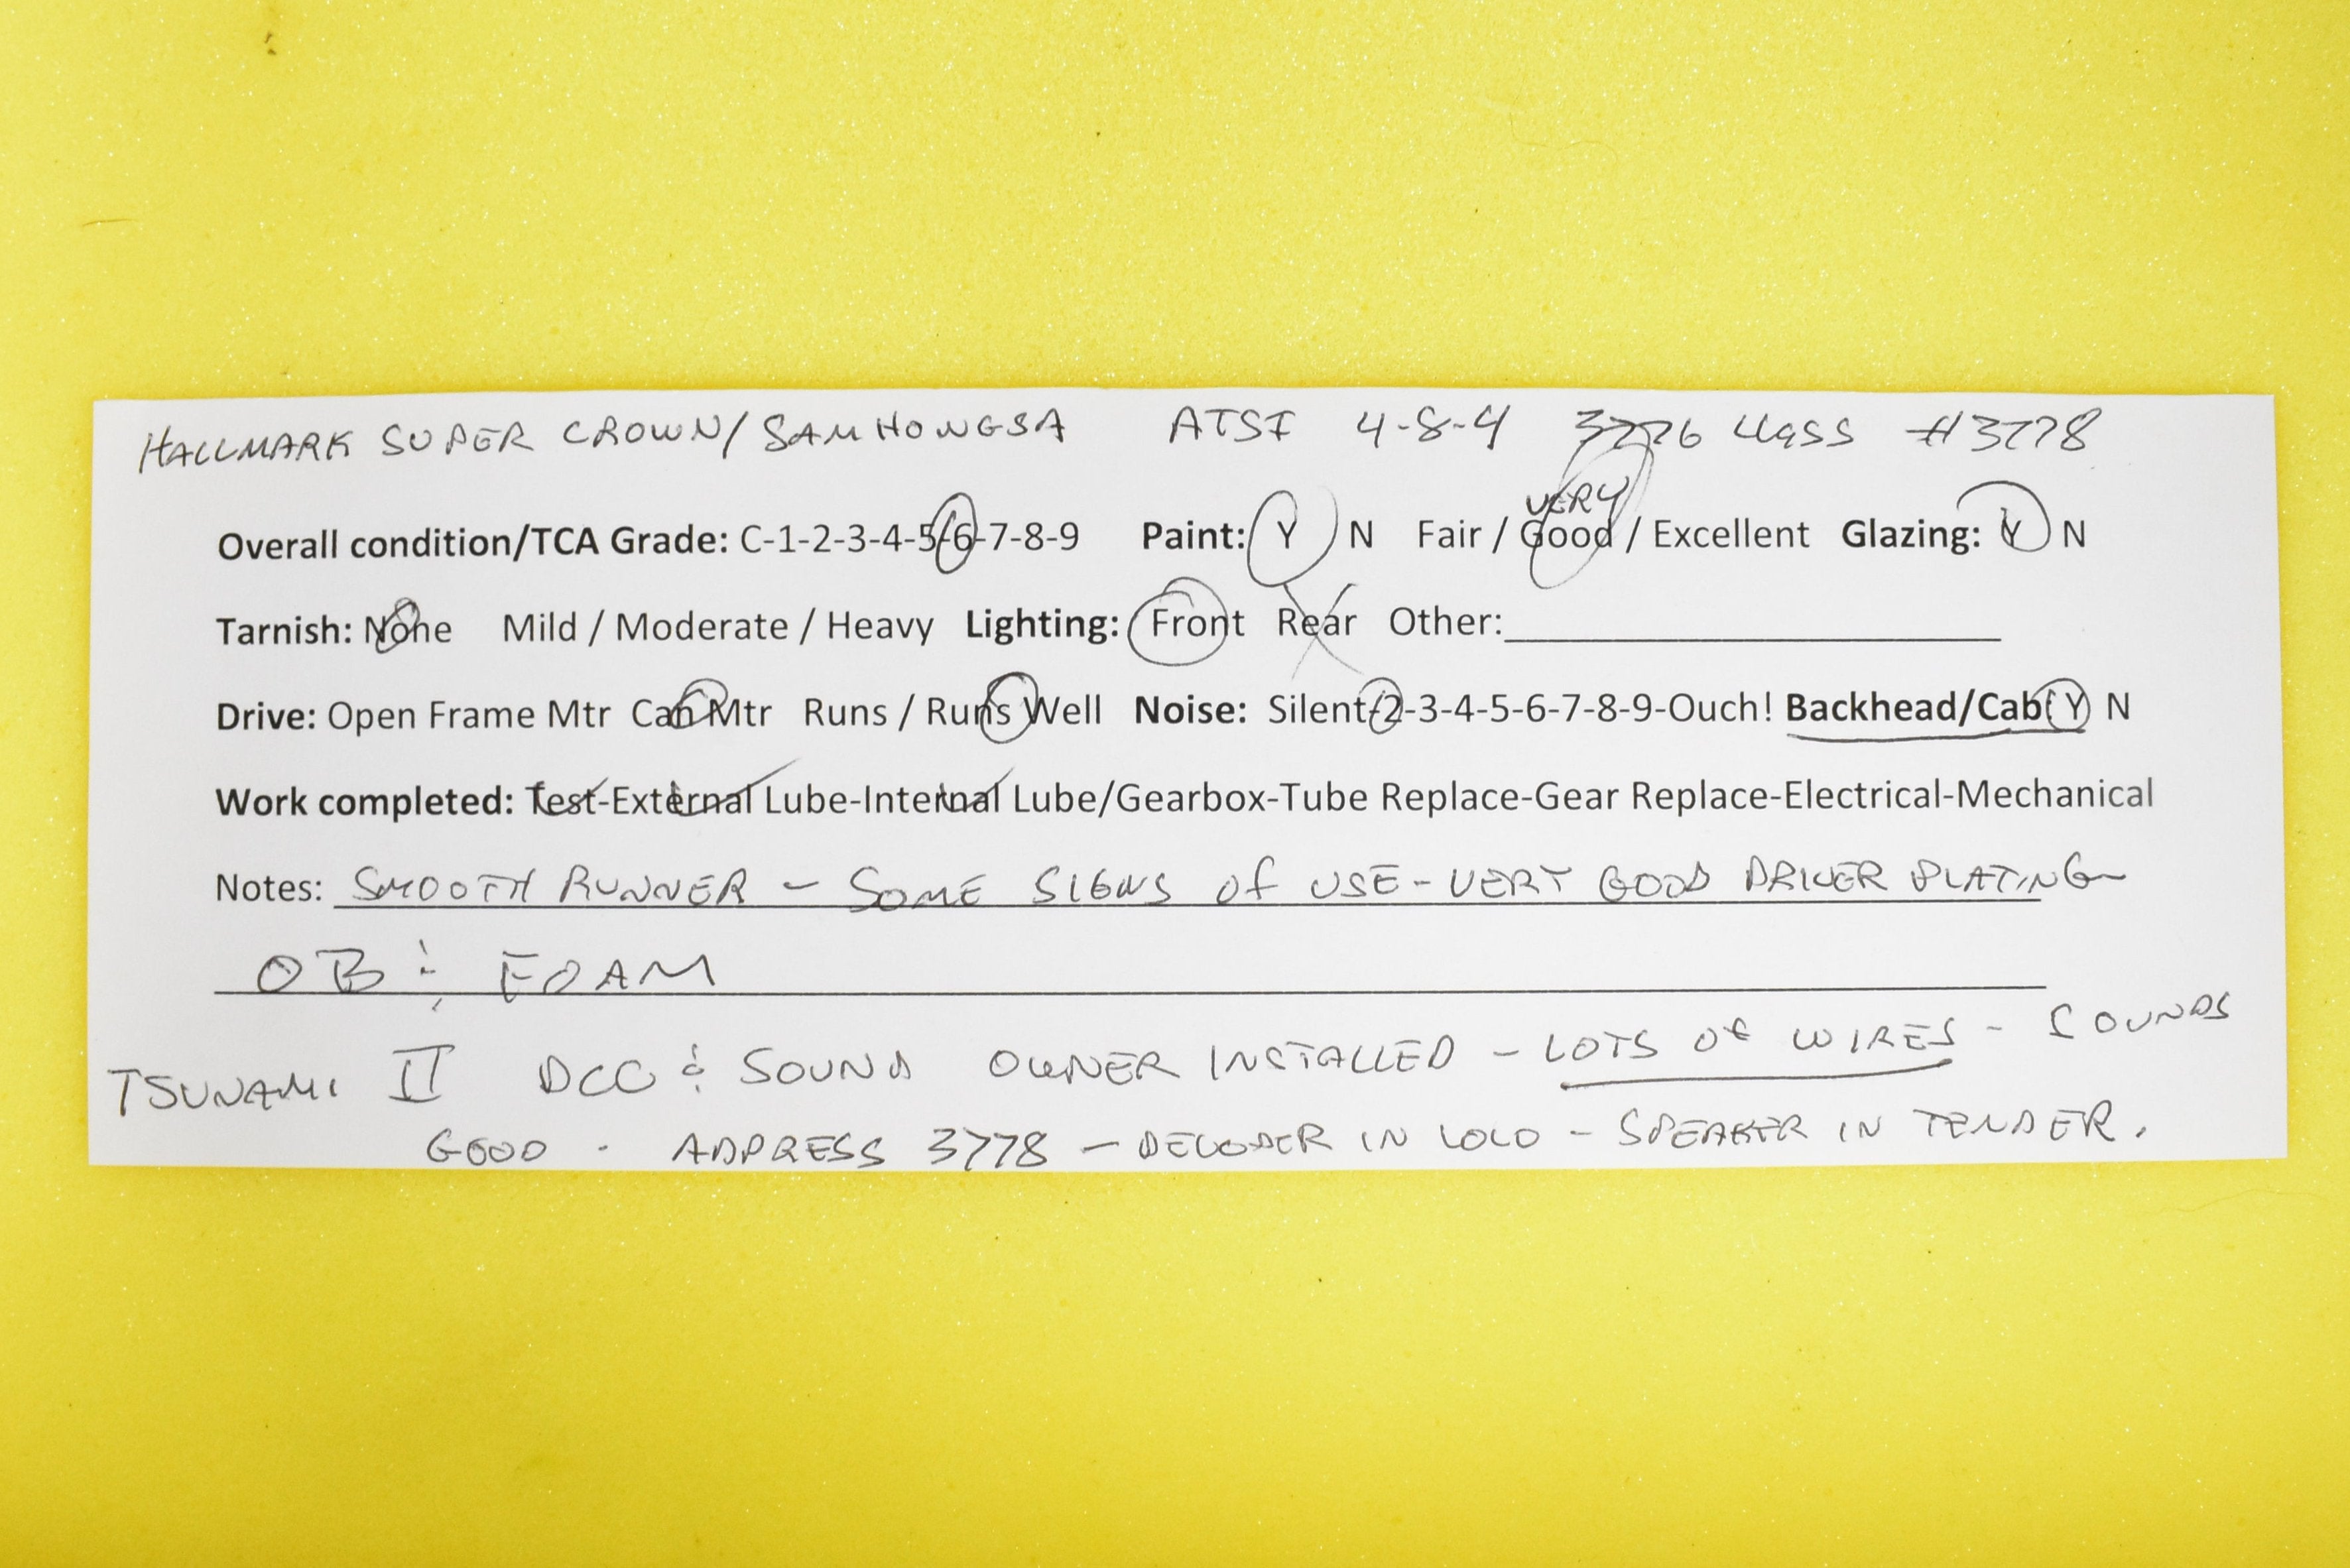 HALLMARK SUPER CROWN/SAMHONGSA ATSF 4-8-4 3776 Class #3778
VERY
Overall condition/TCA Grade: C-1-2-3-4-5-6-7-8-9 Paint: Y N Fair / Good / Excellent Glazing: Y N
Tarnish: None Mild / Moderate / Heavy Lighting: Front Rear Other:
Drive: Open Frame Mtr Can Mtr Runs / Runs Well Noise: Silent-2-3-4-5-6-7-8-9-Ouch! Backhead/Cab: Y N
Work completed: Test-External Lube-Internal Lube/Gearbox-Tube Replace-Gear Replace-Electrical-Mechanical
Notes: SMOOTH RUNNER - SOME SIGNS OF USE - VERY GOOD DRIVER PLATING
OB & FOAM
TSUNAMI II DCC & SOUND OWNER INSTALLED - LOTS OF WIRES - SOUNDS
GOOD - ADDRESS 3778 - DECODER IN LOCO - SPEAKER IN TENDER.